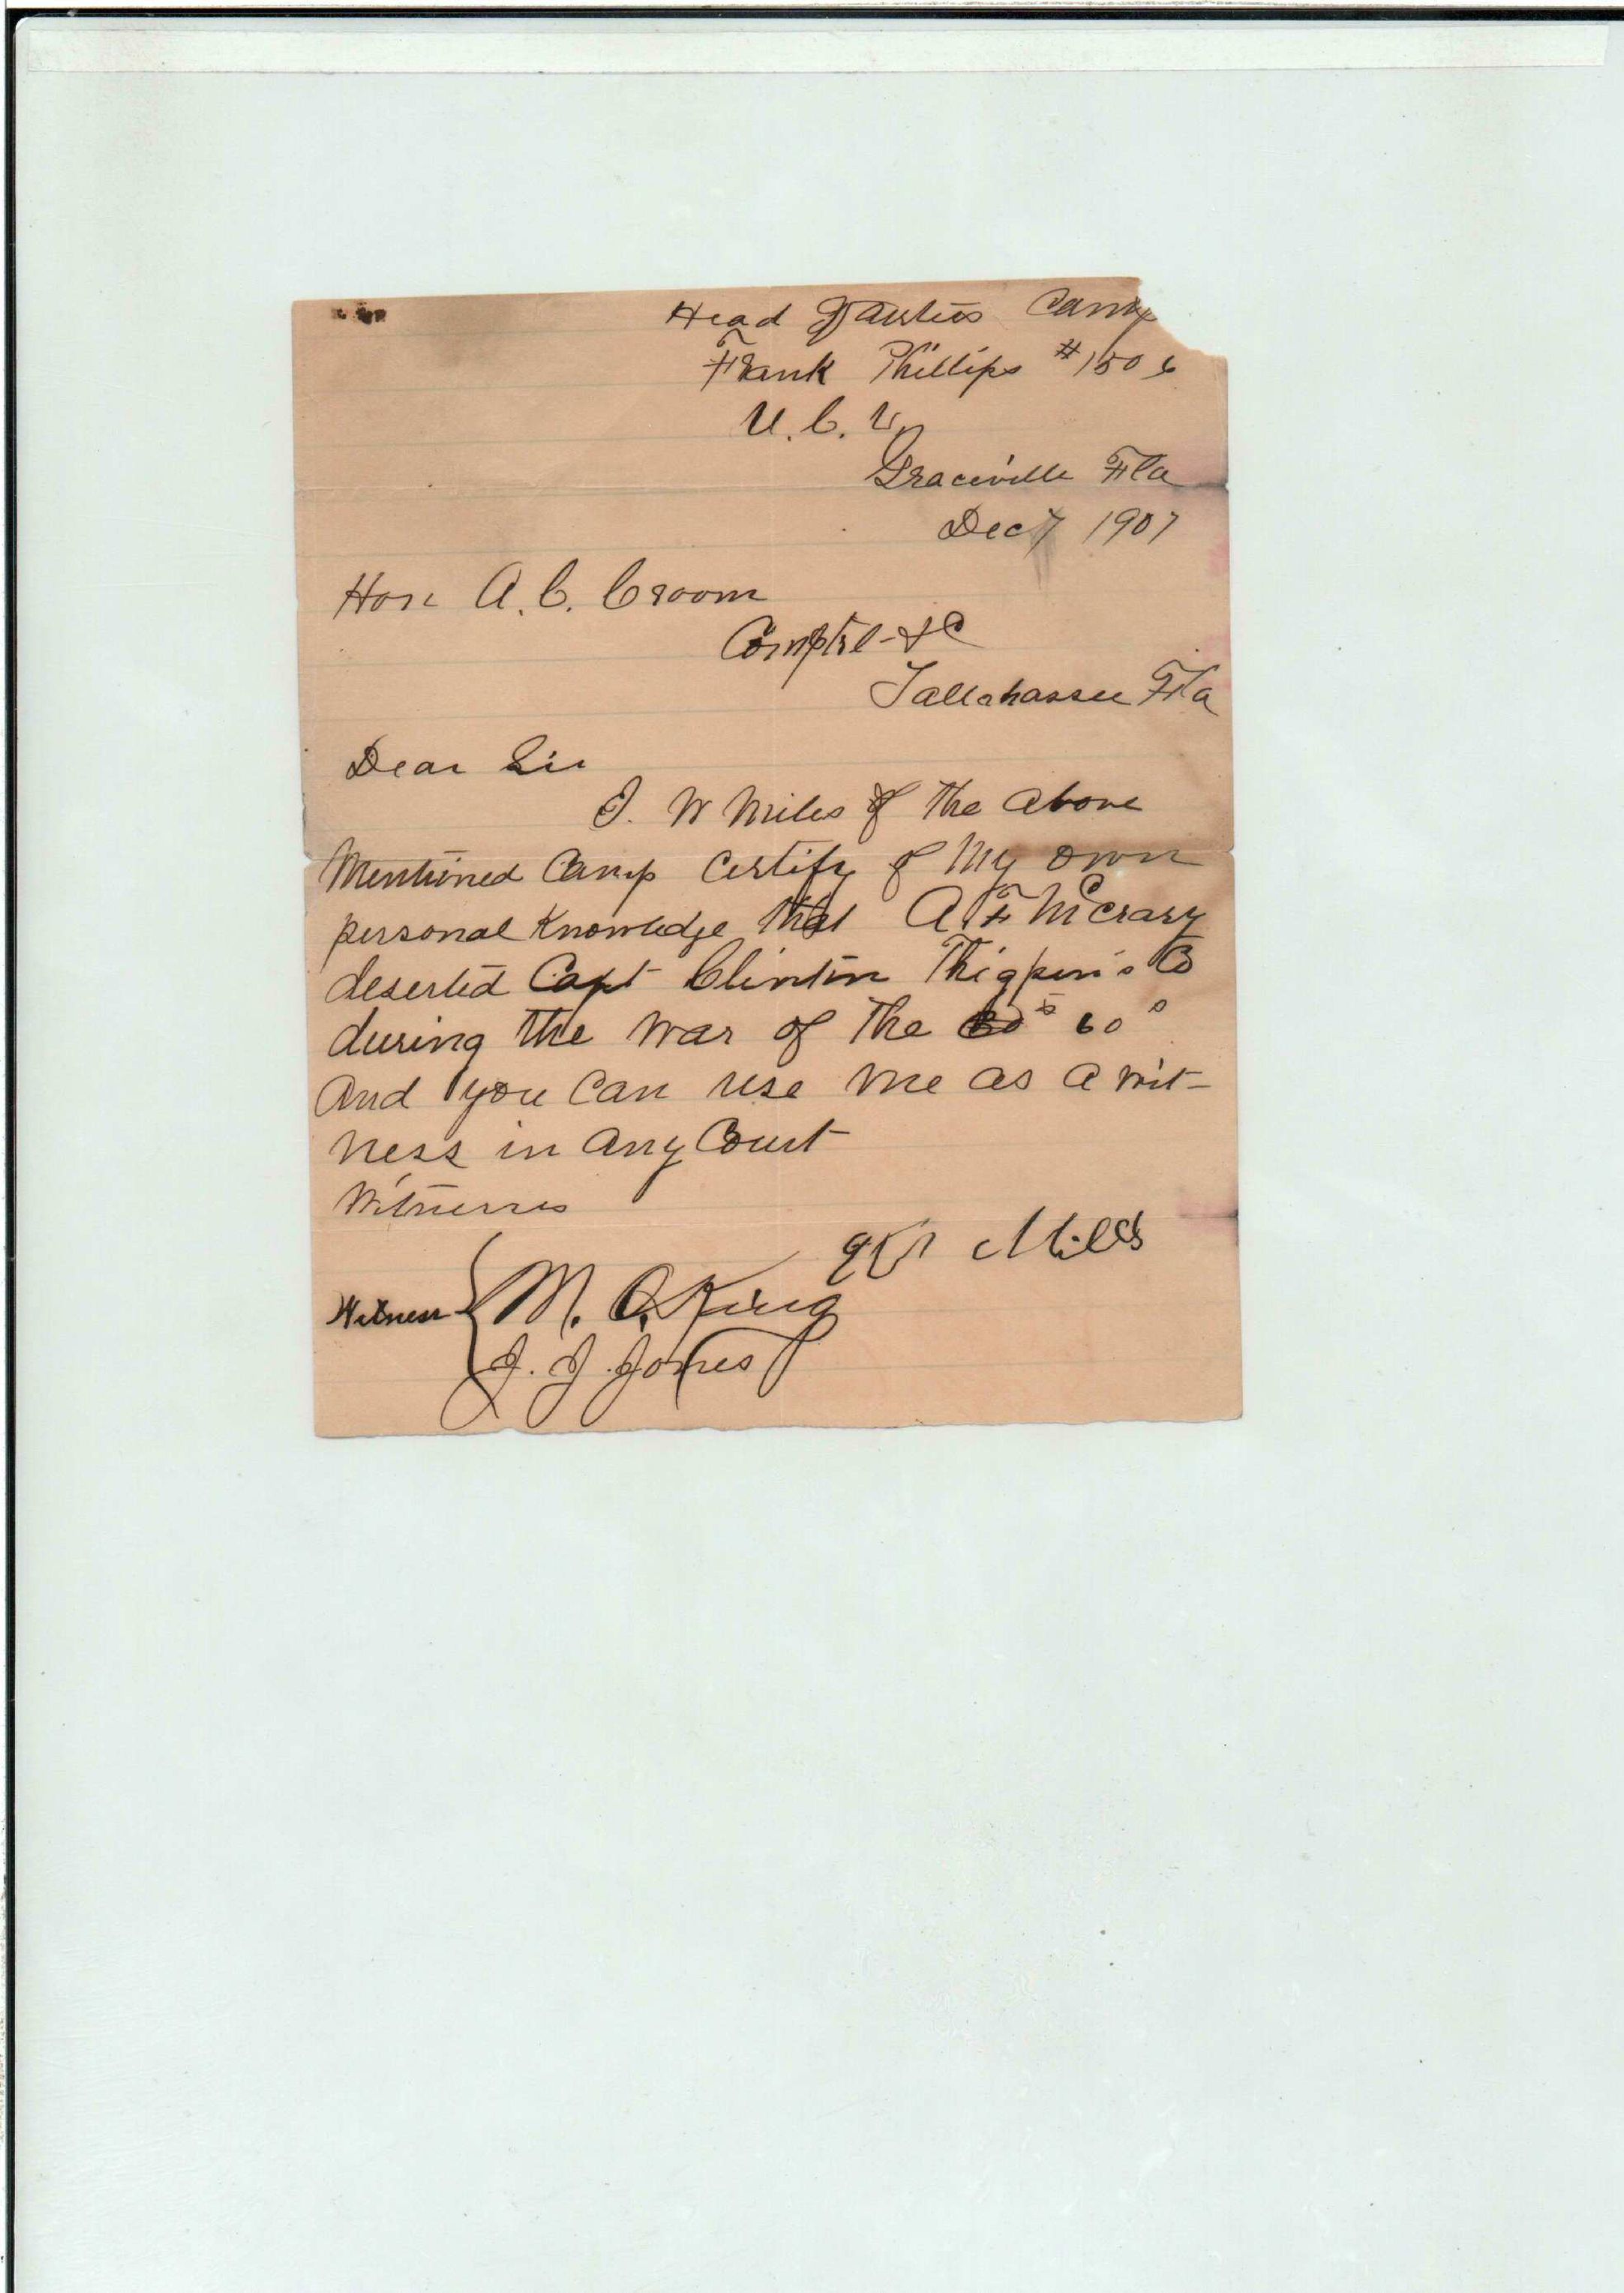 Head Quarters Camp
Frank Phillips #1506
U.C.V.
Graceville Fla
Dec 7 1907
Hon A.C. Croom
Comptrl- &C
Tallahassee Fla
Dear Sir
I. W Miles of the above
Mentioned Camp Certify of My own
personal Knowledge that A F McCrary
deserted Capt Clinton Thigpen's Co
during the War of The 60s
And you Can use me as a wit-
ness in any Court
Witnesses
Miles
Witness M. O. King
J. J. Jones